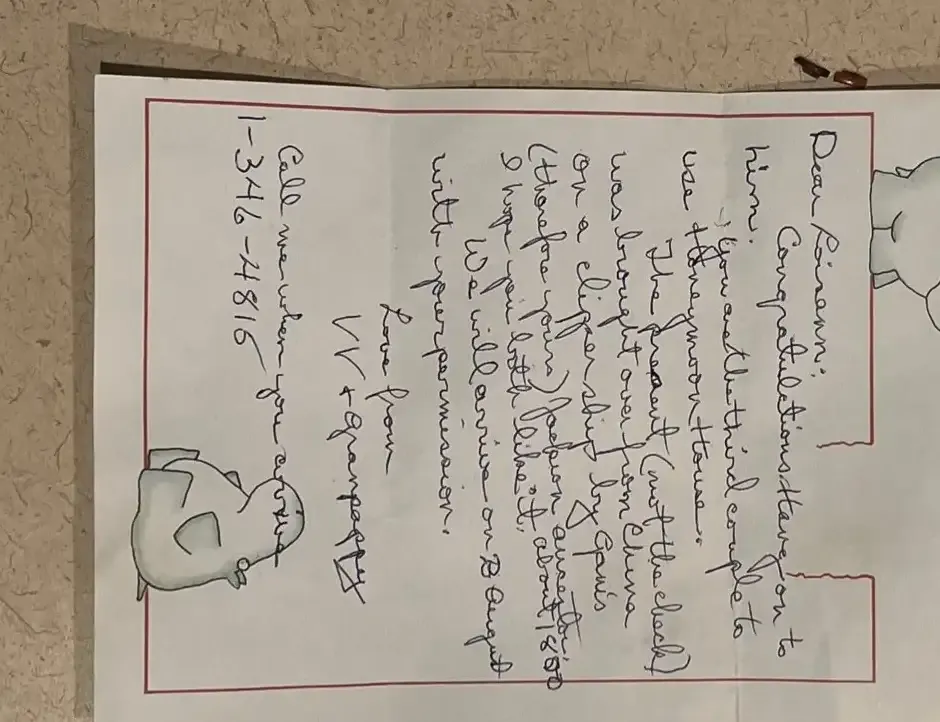 Dear Lizann:
Congratulations Have on to
him.
→) You are the third couple to
use Honeymoon House.
The present (not the check)
was brought over from China
on a clipper ship by Gani's
(therefore yours) Jackson ancestor, about 1800
I hope you both like it.
We will arrive on 28 August
with your permission.
Love from
VV + Granpappy
Call me when you arrive
1-346-4816